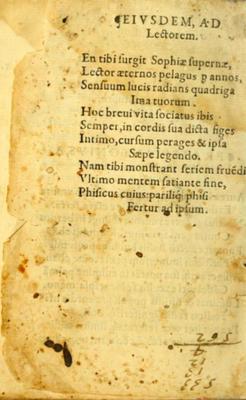 EIVSDEM, AD
Lectorem.
En tibi surgit Sophiæ supernæ,
Lector æternos pelagus p annos,
Sensuum lucis radians quadriga
Ima tuorum.
Hoc brevi vita sociatus ibis
Semper, in cordis sua dicta figes
Intimo, cursum perages & ipsa
Sæpe legendo.
Nam tibi monstrant seriem fruēdi
Vltimo mentem satiante fine,
Phisicus cuius pariliq; phisi
Fertur ad ipsum.